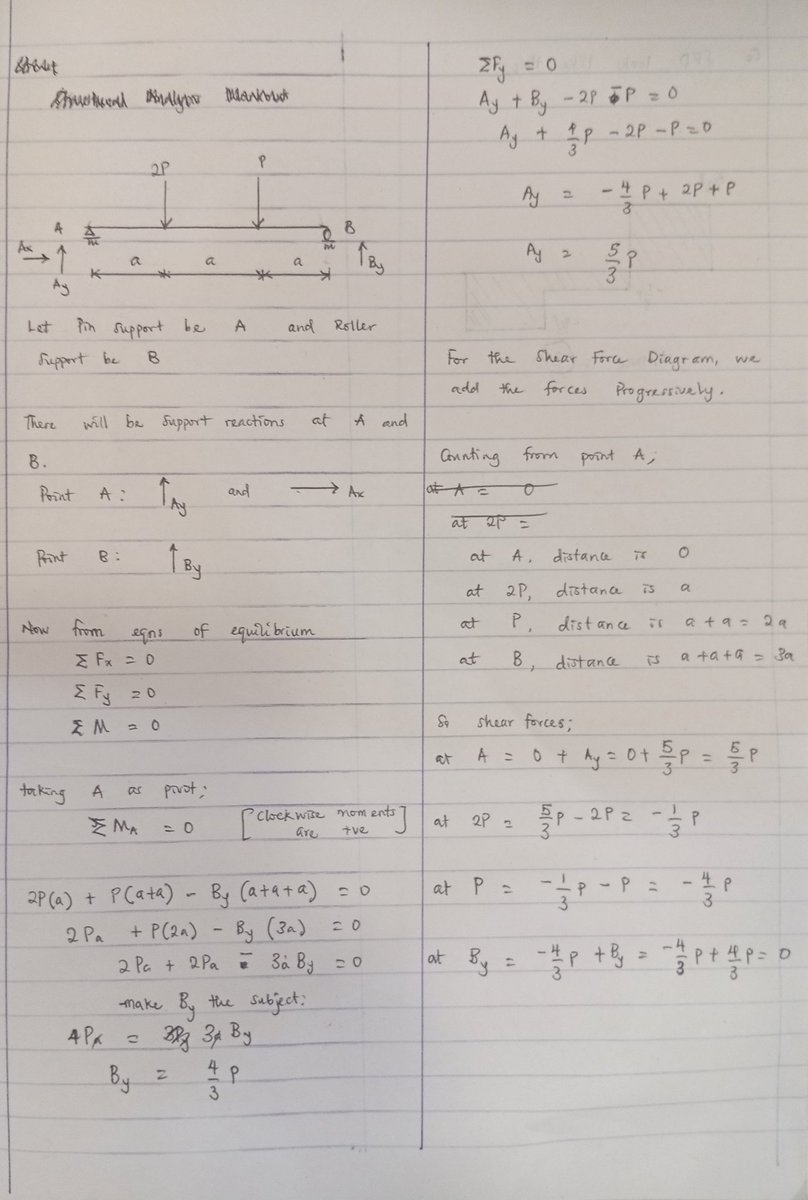 Structural Analysis
2P
P
A
B
Ax
Ay
a
a
a
By
Let Pin support be A and Roller
support be B
There will be support reactions at A and
B.
Point A : ↑Ay and → Ax
Point B : ↑By
Now from eqns of equilibrium
Σ Fx = 0
Σ Fy = 0
Σ M = 0
taking A as pivot;
Σ MA = 0 [Clockwise moments
are +ve]
2P(a) + P(a+a) - By (a+a+a) = 0
2Pa + P(2a) - By (3a) = 0
2Pa + 2Pa - 3a By = 0
make By the subject:
4Pa = 3a By
By = 4/3 P
ΣFy = 0
Ay + By - 2P - P = 0
Ay + 4/3 P - 2P - P = 0
Ay = - 4/3 P + 2P + P
Ay = 5/3 P
For the Shear Force Diagram, we
add the forces Progressively.
Counting from point A;
at A = 0
at 2P =
at A, distance is 0
at 2P, distance is a
at P, distance is a + a = 2a
at B, distance is a + a + a = 3a
So shear forces;
at A = 0 + Ay = 0 + 5/3 P = 5/3 P
at 2P = 5/3 P - 2P = - 1/3 P
at P = - 1/3 P - P = - 4/3 P
at By = -4/3 P + By = -4/3 P + 4/3 P = 0